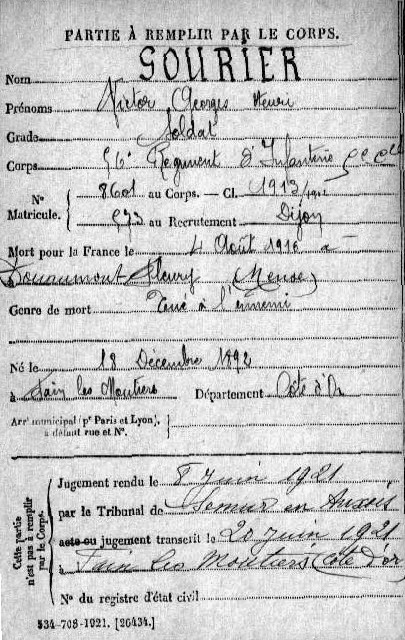 PARTIE À REMPLIR PAR LE CORPS.
Nom SOURIER
Prénoms Victor Georges Henri
Grade Soldat
Corps 56e Régiment d'Infanterie
N° Matricule. 8601 au Corps. — Cl. 1913
973 au Recrutement Dijon
Mort pour la France le 4 Août 1916 à
Douaumont Fleury (Meuse)
Genre de mort Tué à l'ennemi
Né le 18 Décembre 1892
à Fain les Moutiers Département Côte d'Or
Arrt municipal (pr Paris et Lyon),
à défaut rue et N°.
Cette partie n'est pas à remplir par le Corps.
Jugement rendu le 8 Juin 1921
par le Tribunal de Semur en Auxois
acte ou jugement transcrit le 20 juin 1921
à Fain les Moutiers (Côte d'or)
N° du registre d'état civil
534-708-1921. [26434.]